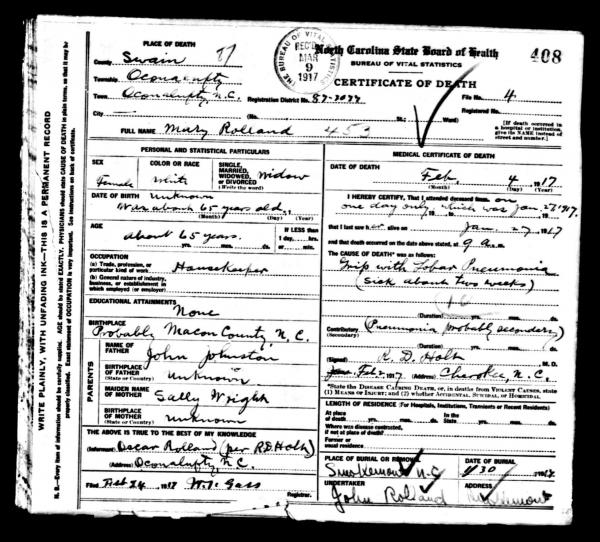 WRITE PLAINLY, WITH UNFADING INK—THIS IS A PERMANENT RECORD
N. B.—Every item of information should be carefully supplied. AGE should be stated EXACTLY. PHYSICIANS should state CAUSE OF DEATH in plain terms, so that it may be properly classified. Exact statement of OCCUPATION is very important. See instructions on back of certificate.
PLACE OF DEATH
County Swain 87
Township Oconalufty
Town Oconalufty, N.C.
City
THE BUREAU OF VITAL STATISTICS
REC'D
MAR
9
1917
North Carolina State Board of Health
BUREAU OF VITAL STATISTICS
408
CERTIFICATE OF DEATH
Registration District No. 87-2077
File No. 4
Registered No.
(No. St.; Ward)
[If death occurred in a hospital or institution, give the NAME instead of street and number.]
FULL NAME Mary Rolland
PERSONAL AND STATISTICAL PARTICULARS
SEX
Female
COLOR OR RACE
White
SINGLE, MARRIED, WIDOWED, OR DIVORCED (Write the word)
Widow
DATE OF BIRTH unknown
Was about 65 years old
(Month) (Day) (Year)
AGE
about 65 years.
yrs. mos. ds.
If LESS than 1 day, hrs. or min.
OCCUPATION
(a) Trade, profession, or particular kind of work
Housekeeper
(b) General nature of industry, business, or establishment in which employed (or employer)
EDUCATIONAL ATTAINMENTS
None
BIRTHPLACE
(State or Country)
Probably Macon County, N.C.
PARENTS
NAME OF FATHER
John Johnston
BIRTHPLACE OF FATHER
(State or Country)
unknown
MAIDEN NAME OF MOTHER
Sally Wright
BIRTHPLACE OF MOTHER
(State or Country)
unknown
THE ABOVE IS TRUE TO THE BEST OF MY KNOWLEDGE
(Informant) Oscar Rolland (per R D Holt)
(Address) Oconalufty, N.C.
Filed Feb 24 1917 W.T. Gass
Registrar.
MEDICAL CERTIFICATE OF DEATH
DATE OF DEATH
Feb. 4 1917
(Month) (Day) (Year)
I HEREBY CERTIFY, That I attended deceased from on
one day only, which was Jan. 27 1917,
that I last saw her alive on Jan. 27, 1917
and that death occurred on the date above stated, at 9 a m.
The CAUSE OF DEATH* was as follows:
Grip with Lobar Pneumonia
(sick about two weeks)
(Duration) yrs. mos. ds.
Contributory (Pneumonia probably secondary)
(Secondary)
(Duration) yrs. mos. ds.
(Signed) R. D. Holt M. D.
Feb. 1917 (Address) Cherokee, N.C.
*State the DISEASE CAUSING DEATH, or, in deaths from VIOLENT CAUSES, state (1) MEANS OF INJURY; and (2) whether ACCIDENTAL, SUICIDAL, or HOMICIDAL.
LENGTH OF RESIDENCE (For Hospitals, Institutions, Transients or Recent Residents)
At place of death yrs. mos. ds. State yrs. mos. ds.
Where was disease contracted, if not at place of death?
Former or usual residence
PLACE OF BURIAL OR REMOVAL
Smokemont N.C.
DATE OF BURIAL
1917
UNDERTAKER
John Rolland
ADDRESS
Smokemont